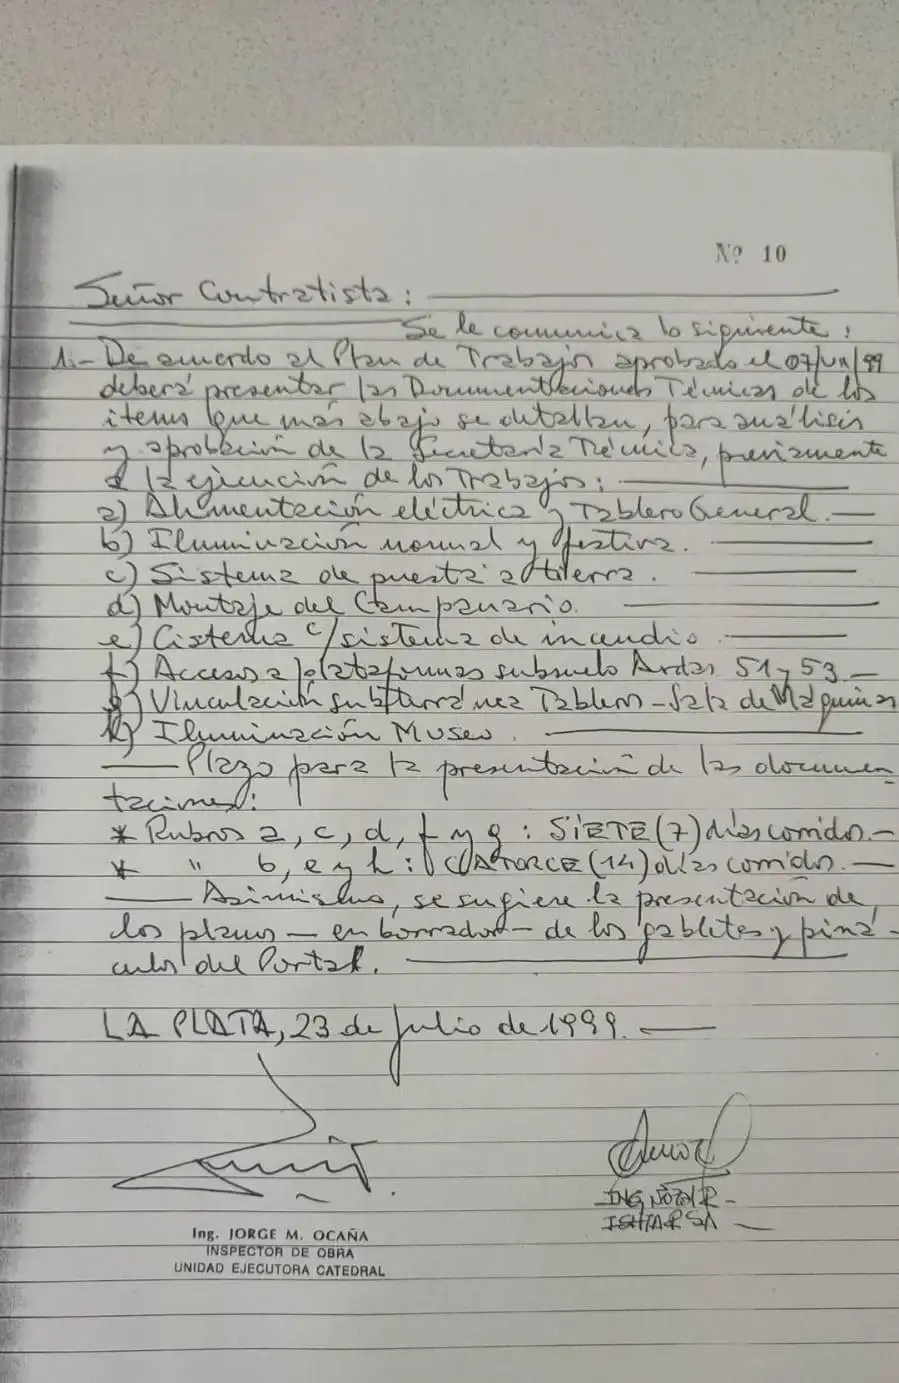 Nº 10
Señor Contratista:
Se le comunica lo siguiente:
1.- De acuerdo al Plan de Trabajos aprobado el 07/VII/99
deberá presentar las Documentaciones Técnicas de los
items que más abajo se detallan, para análisis
y aprobación de la Secretaría Técnica, previamente
a la ejecución de los Trabajos:
a) Alimentación eléctrica y Tablero General.
b) Iluminación normal y festiva.
c) Sistema de puesta a tierra.
d) Montaje del Campanario.
e) Cisterna c/sistema de incendio
f) Accesos a plataformas subsuelo Avdas 51 y 53.
g) Vinculación subterránea Tableros - Sala de Máquinas
h) Iluminación Museo.
Plazo para la presentación de las documen-
taciones:
* Rubros a, c, d, f y g: SIETE (7) días corridos.-
* " b, e y h: CATORCE (14) días corridos.
Asimismo, se sugiere la presentación de
los planos - en borrador - de los gabletes y piná-
culos del Portal.
LA PLATA, 23 de Julio de 1999.
Ing. JORGE M. OCAÑA
INSPECTOR DE OBRA
UNIDAD EJECUTORA CATEDRAL
ING
SA